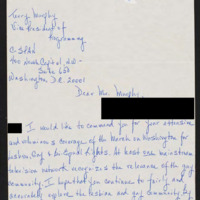 Terry Murphy
Vice President of
Programming
C-SPAN
400 North Capitol, NW -
Suite 650
Washington D.C. 20001
Dear Mr. Murphy,
I would like to commend you for your extensive
and voluminous coverage of the March on Washington for
Lesbian, Gay & bi Equal Rights. At least one mainstream
television network recognizes the relevance of the gay
community. I hope that you continue to fairly and
accurately explore the lesbian and gay community by